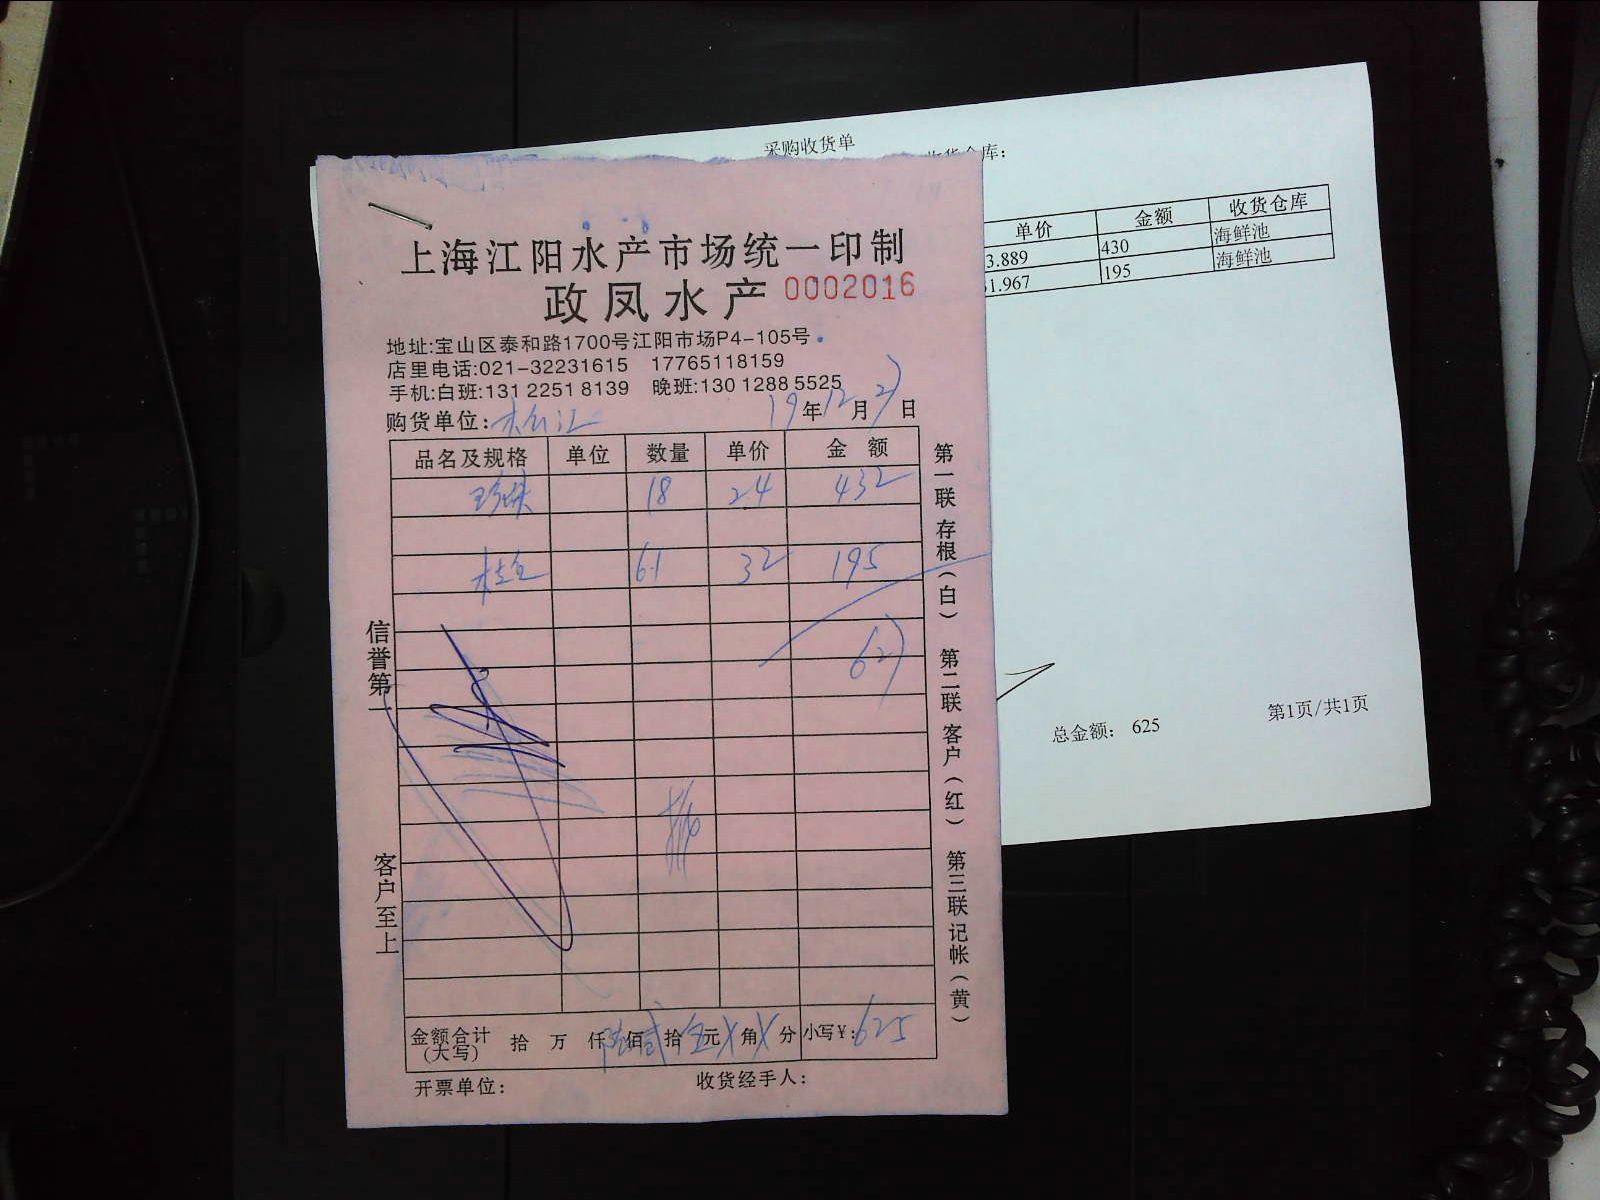 采购收货单
收货仓库：
单价 金额 收货仓库
3.889 430 海鲜池
1.967 195 海鲜池
总金额： 625
第1页/共1页
上海江阳水产市场统一印制
政凤水产 0002016
地址:宝山区泰和路1700号江阳市场P4-105号
店里电话:021-32231615 17765118159
手机:白班:131 2251 8139 晚班:130 1288 5525
购货单位: 19年12月27日
品名及规格 单位 数量 单价 金 额
珍珠 18 24 432
桂鱼 6.1 32 195
627
信誉第一
客户至上
第一联存根(白) 第二联客户(红) 第三联记帐(黄)
金额合计(大写) 拾 万 仟陆佰贰拾伍元X角X分 小写￥:625
开票单位: 收货经手人: